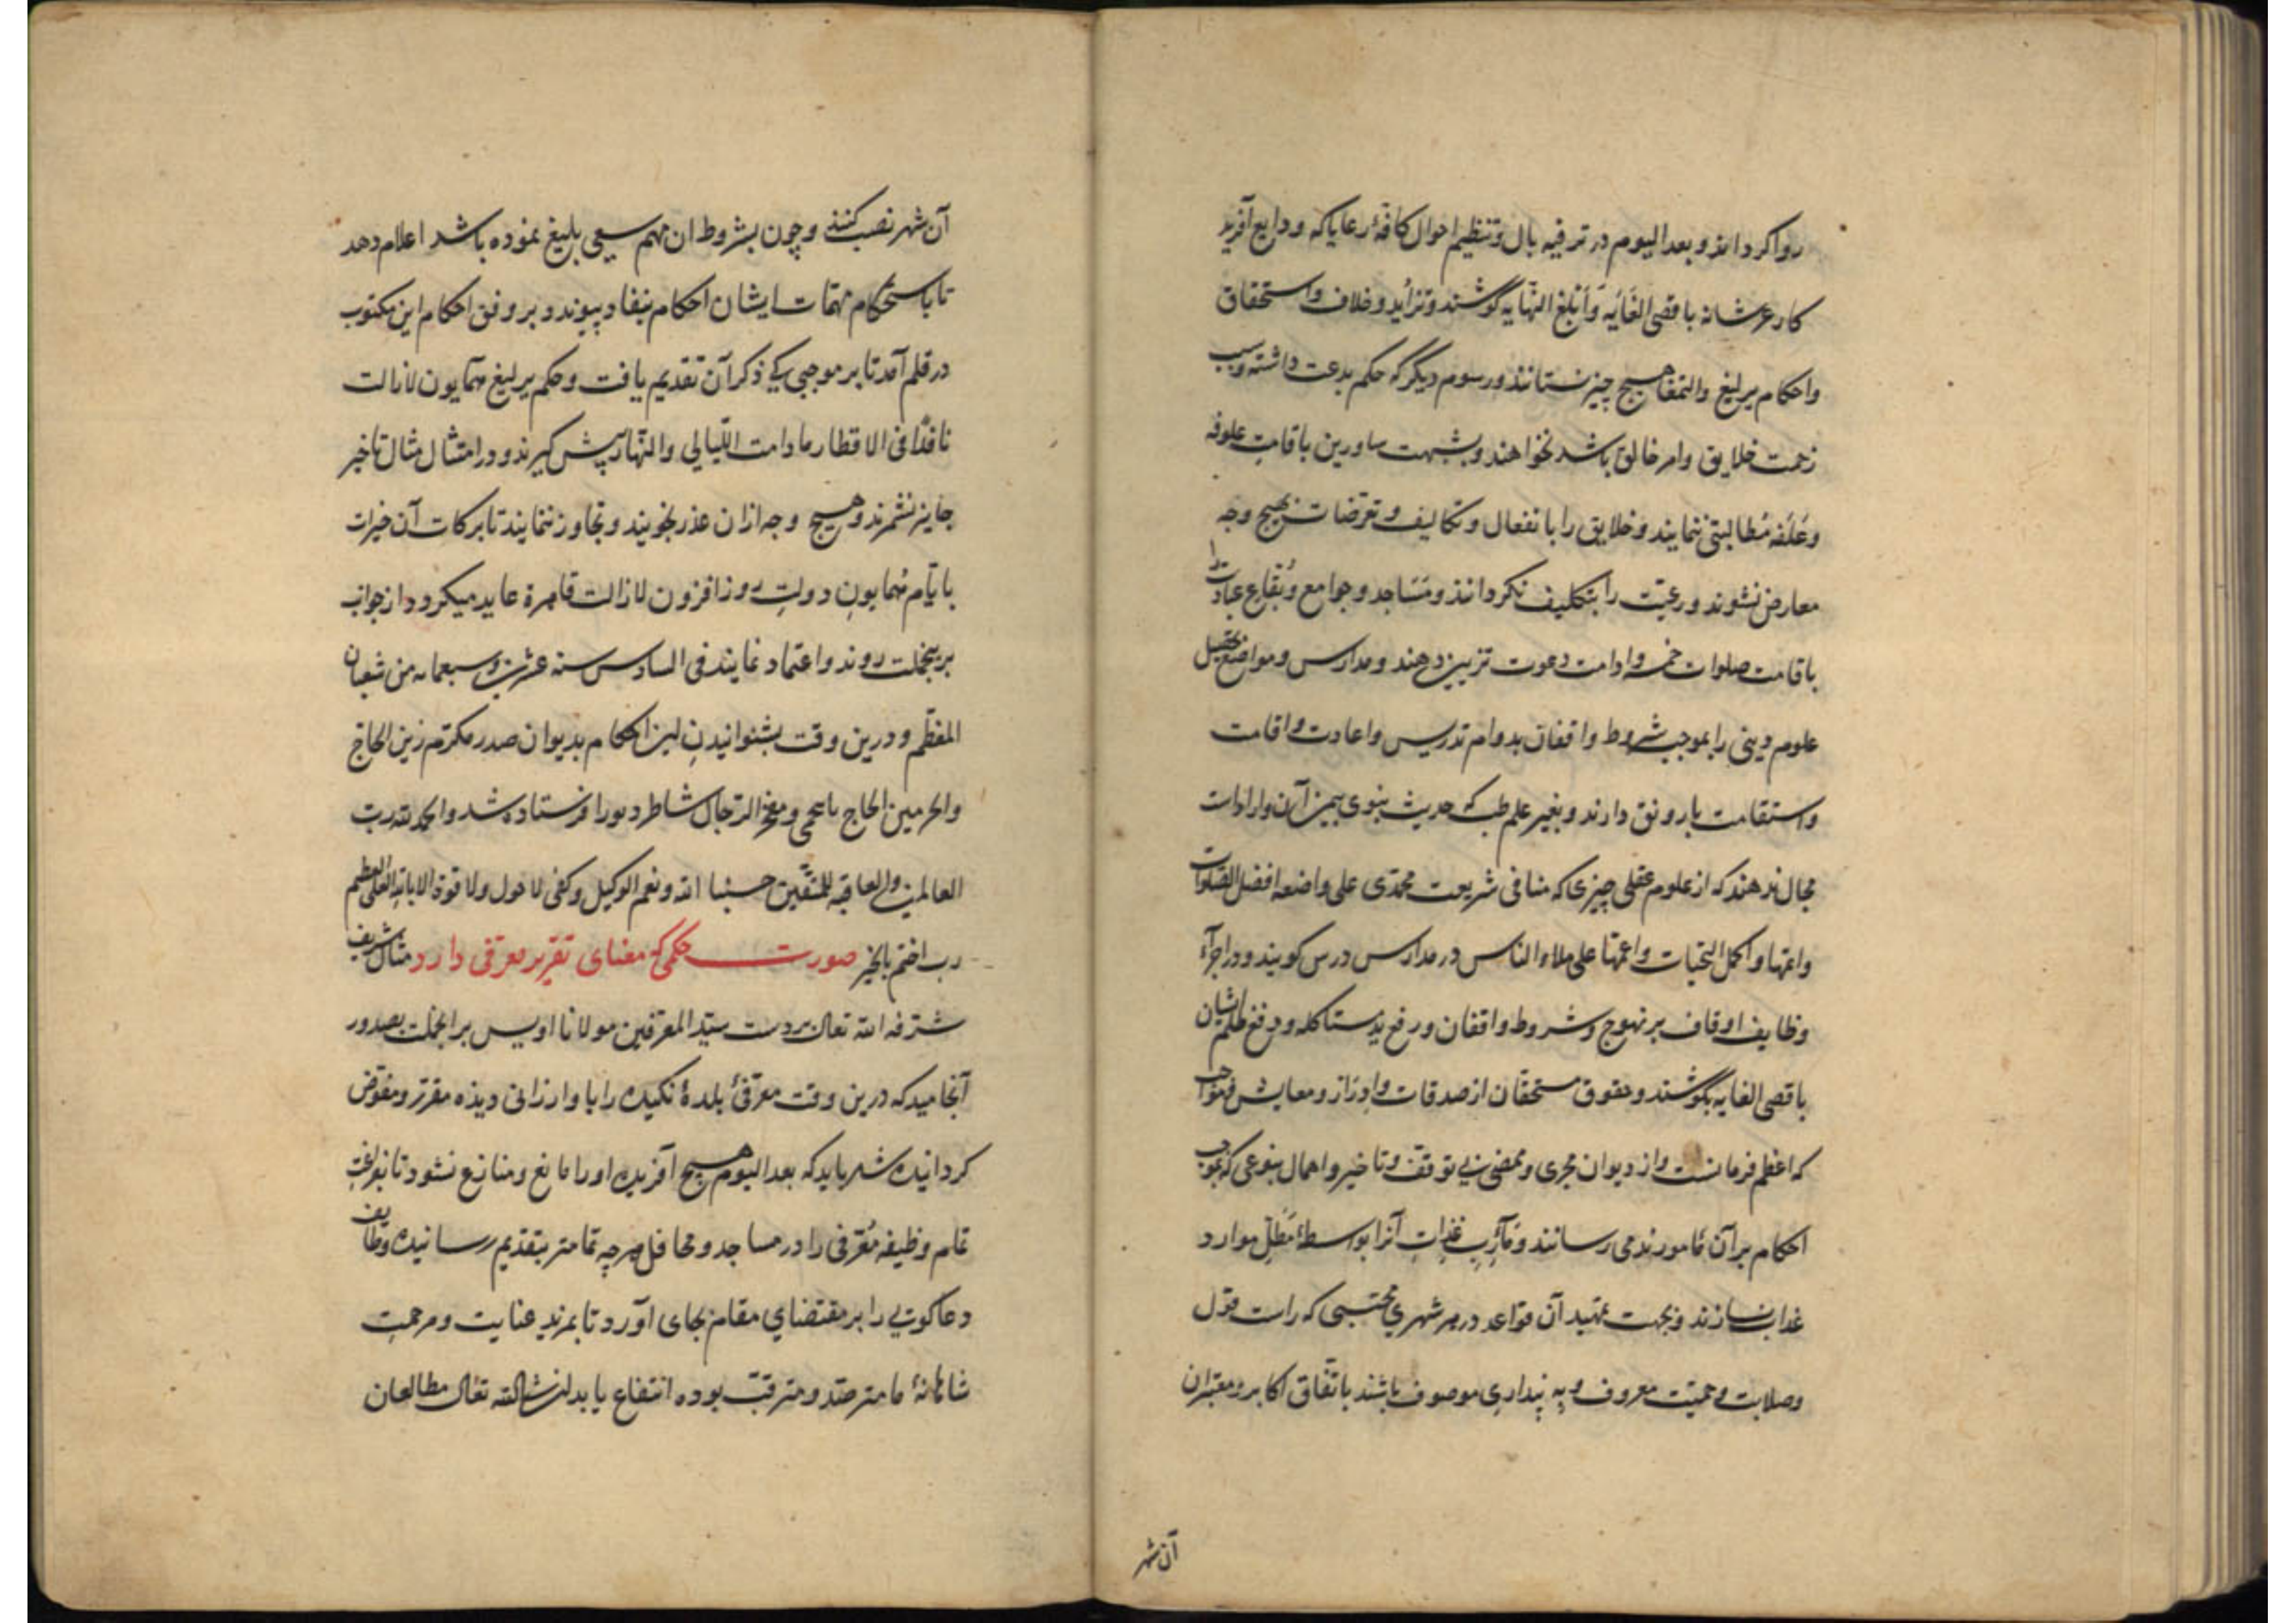 روا کرد اند و بعد الیوم در ترفیه بال و تنظیم احوال کافهٔ رعایا که ودایع آفرید
کار عز شانه باقصی الغایه و أبلغ النهایه کوشند و تزاید و خلاف و استحقاق
و احکام یرلیغ و التمغا هیچ چیز نستانند و رسوم دیگر که حکم بدعت داشته و سبب
زحمت خلایق و امر خالق باشد نخواهند و بشبهت ساورین باقامت علوفه
و علفه مطالبتی ننمایند و خلایق را بانفعال و تکالیف و تعرضات بهیچ وجه
معارض نشوند و رعیت را بتکلیف نکردانند و مساجد و جوامع و بقاع عبادت را
باقامت صلوات خمسه و ادامت دعوت تزیین دهند و مدارس و مواضع تحصیل
علوم دینی را بموجب شروط واقفان بدوام تدریس و اعادت و اقامت
و استقامت بارونق دارند و بغیر علم طب که حدیث نبوی
مجال ندهند که از علوم عقلی چیزی که منافی شریعت محمدی علی واضعه افضل الصلوات
و اعمها و اکمل التحیات و اعمها علی ملاء الناس در مدارس درس کویند و در اجراء
وظایف اوقاف بر نهوج و شروط واقفان و رفع ید مستاکله و دفع ظلم ایشان
باقصی الغایه بکوشند و حقوق مستحقان از صدقات و ادرار و معایش
که اعظم فرمانست و از دیوان مجری و ممضی بی توقف و تاخیر و اهمال بنوعی که بموجب
احکام بر آن مامورند می رسانند و مآرب آنرا بواسطهٔ مطل موارد
عذاب نسازند و بجهت تمهید آن قواعد در هر شهری محتسبی که راست قول
و صلابت و حمیت معروف و به دینداری موصوف باشند باتفاق اکابر و معتبران
آن شهر
آن شهر نصب کنند و چون بشروط ان مهم سعی بلیغ نموده باشد اعلام دهد
تا باستحکام مهمات ایشان احکام بنفاد پیوندد و بر وفق احکام این مکتوب
در قلم آمد تا بر موجبی که ذکر آن تقدیم یافت و حکم یرلیغ همایون لازالت
نافذا فی الاقطار مادامت اللیالی و النهار پیش کیرند و در امتثال مثال تاخیر
جایز نشمرند و هیچ وجه ازان عذر نجویند و تجاوز ننمایند تا برکات آن خیرات
بایام همایون دولت روز افزون لازالت قاهرة عاید میکردد از جوانب
برینجملت روند و اعتماد نمایند فی السادس سنه عشرین و سبعمایه من شعبان
المعظم و درین وقت بشنوانیدن این احکام بدیوان صدر مکرم زین الحاج
و الحرمین الحاج و مفخر الرجال شاطر فرستاده شد و الحمد لله رب
العالمین و العاقبه للمتقین حسبنا الله و نعم الوکیل و کفی لاحول ولا قوة الا بالله العلی العظیم
رب اختم بالخیر صورت حکمی که معنای تقریر معرفی دارد مثال شریف
شرفه الله تعالی بر دست سید المعرفین مولانا اویس بر انجملت بصدور
آنجامید که درین وقت معرفئ بلدهٔ نکیده را باو ارزانی دیده مقرر و مفوض
کردانیده شد باید که بعد الیوم هیچ آفریده او را مانع و منازع نشود تا بفراغت
تمام وظیفه معرفی را در مساجد و محافل هرچه تمامتر بتقدیم رسانیده وظایف
دعاکویی را بر مقتضای مقام بجای آورد تا بمزید عنایت و مرحمت
شاهانهٔ ما مترصد و مترقب بوده انتفاع یابد انشاالله تعالی مطالعان